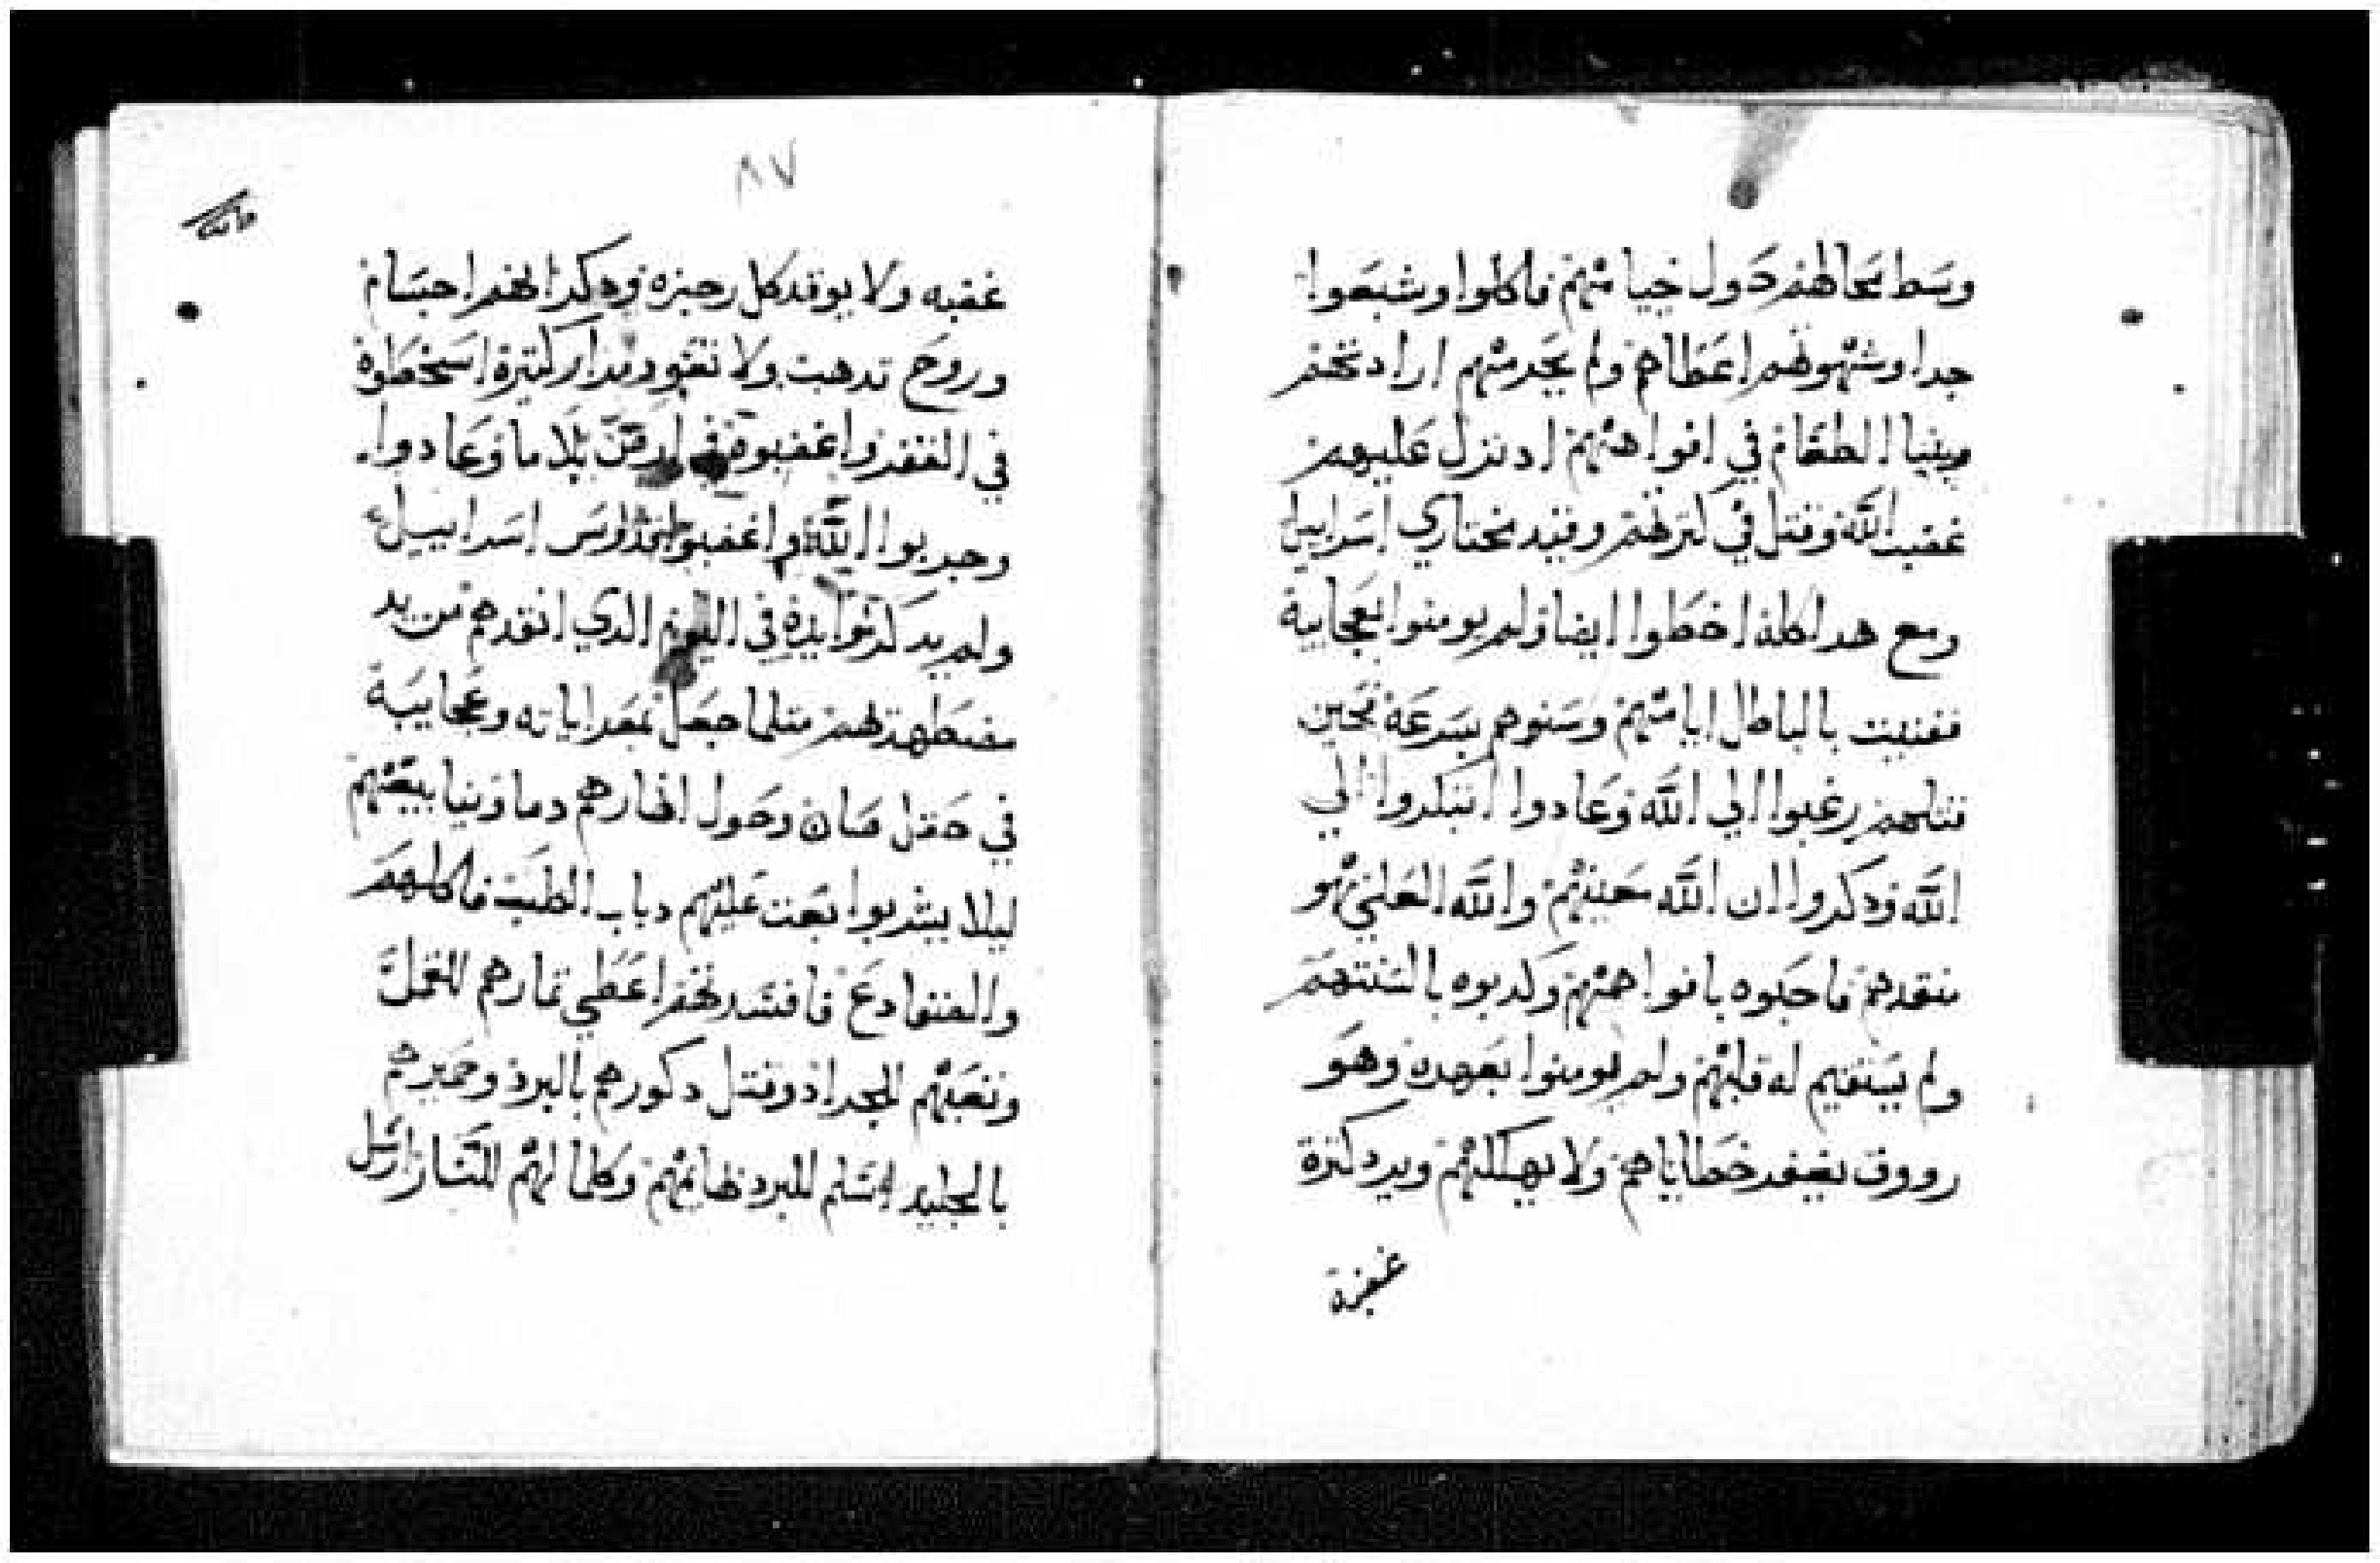 وسط محالهم حول خيامهم فاكلوا وشبعوا
جدا وشهوتهم اعطاهم ولم يحرمهم ارادتهم
وبينا الطعام في افواههم اد نزل عليهم
غضب الله وقتل في كترتهم وقيد مختاري اسراييل
ومع هدا كله اخطوا ايضا ولم يومنوا بعجايبه
ففنيت بالباطل ايامهم وسنوهم بسرعة حين
قتلهم رغبوا الي الله وعادوا ابتكروا الي
الله ودكروا ان الله معينهم والله العلي هو
منقدهم فاحبوه بافواههم وكدبوه بالسنتهم
ولم يستقيم له قلبهم ولم يومنوا بعهده وهو
رووف يغفر خطاياهم ولا يهلكهم ويرد كترة
غضبه
٨٧
غضبه ولا يوقد كل رجزه ودكر انهم اجسام
وروح تدهب ولا تعود مرار كتيرة اسخطوه
في القفر واغضبوه في ارض بلا ما وعادوا
وجربوا الله واغضبوا قدوس اسراييل
ولم يدكروا يده في اليوم الدي انقدهم من يد
مضطهدهم متلما جعل بمصر اياته وعجايبه
في حقل صان وحول انهارهم دما وبنيا بيعهم
ليلا يشربوا بعت عليهم دباب الطب فاكلهم
والضفادع فافسدتهم اعطي تمارهم للقمل
وتعبهم للجراد وقتل كرومهم بالبرد وحميرهم
بالجليد اسلم للبرد بهايمهم وكلما لهم للنار ارسل